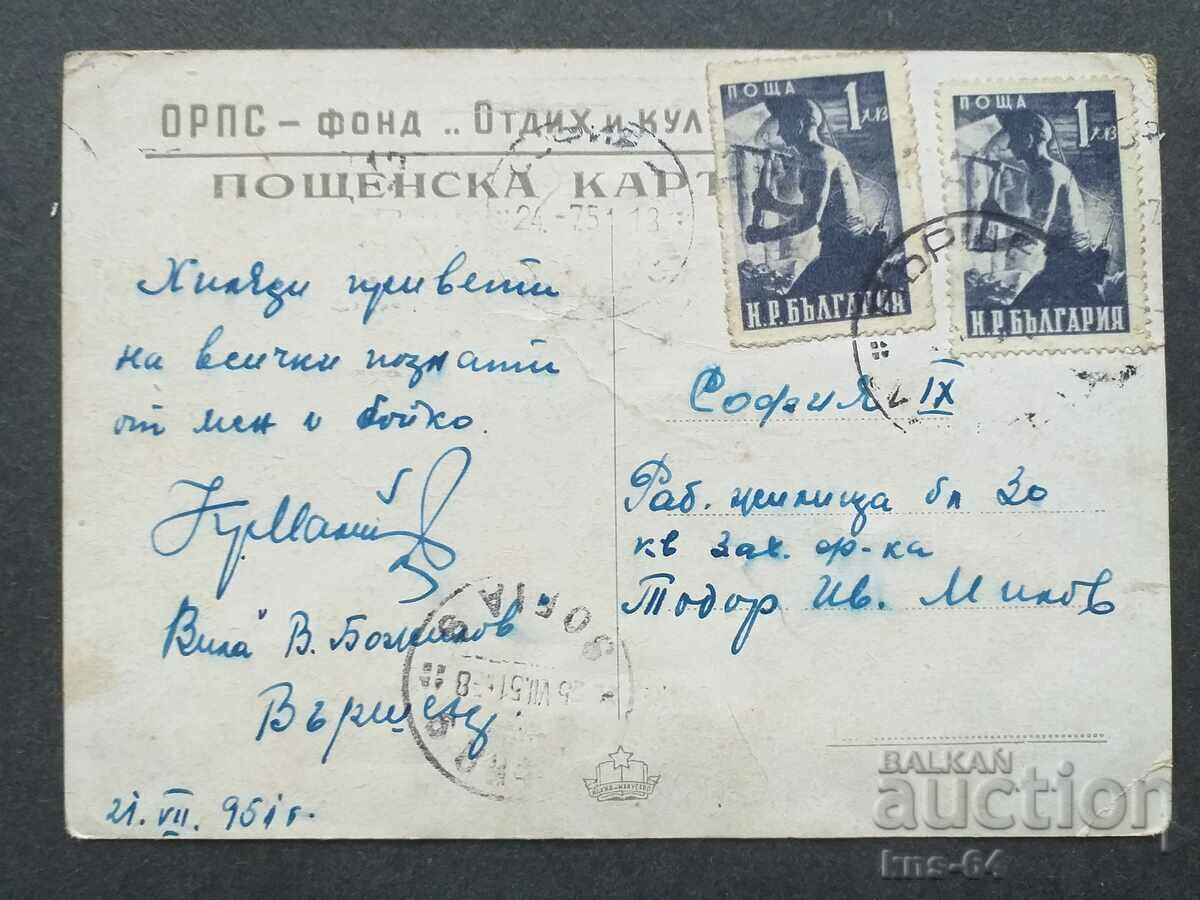 ОРПС – фонд „Отдих и кул
ПОЩЕНСКА КАРТ
ПОЩА 1 лв
Н.Р. БЪЛГАРИЯ
ПОЩА 1 лв
Н.Р. БЪЛГАРИЯ
Хиляди привети
на всички познати
от мен и Бойко.
Вила "В. Божилов
Вършец
21. VII. 951 г.
София IX
Раб. жилища бл 30
кв зах. ф-ка
Тодор Ив. Миков
24.-7.51.18
SOFIA
VII.51
BALKAN
auction
kns-64